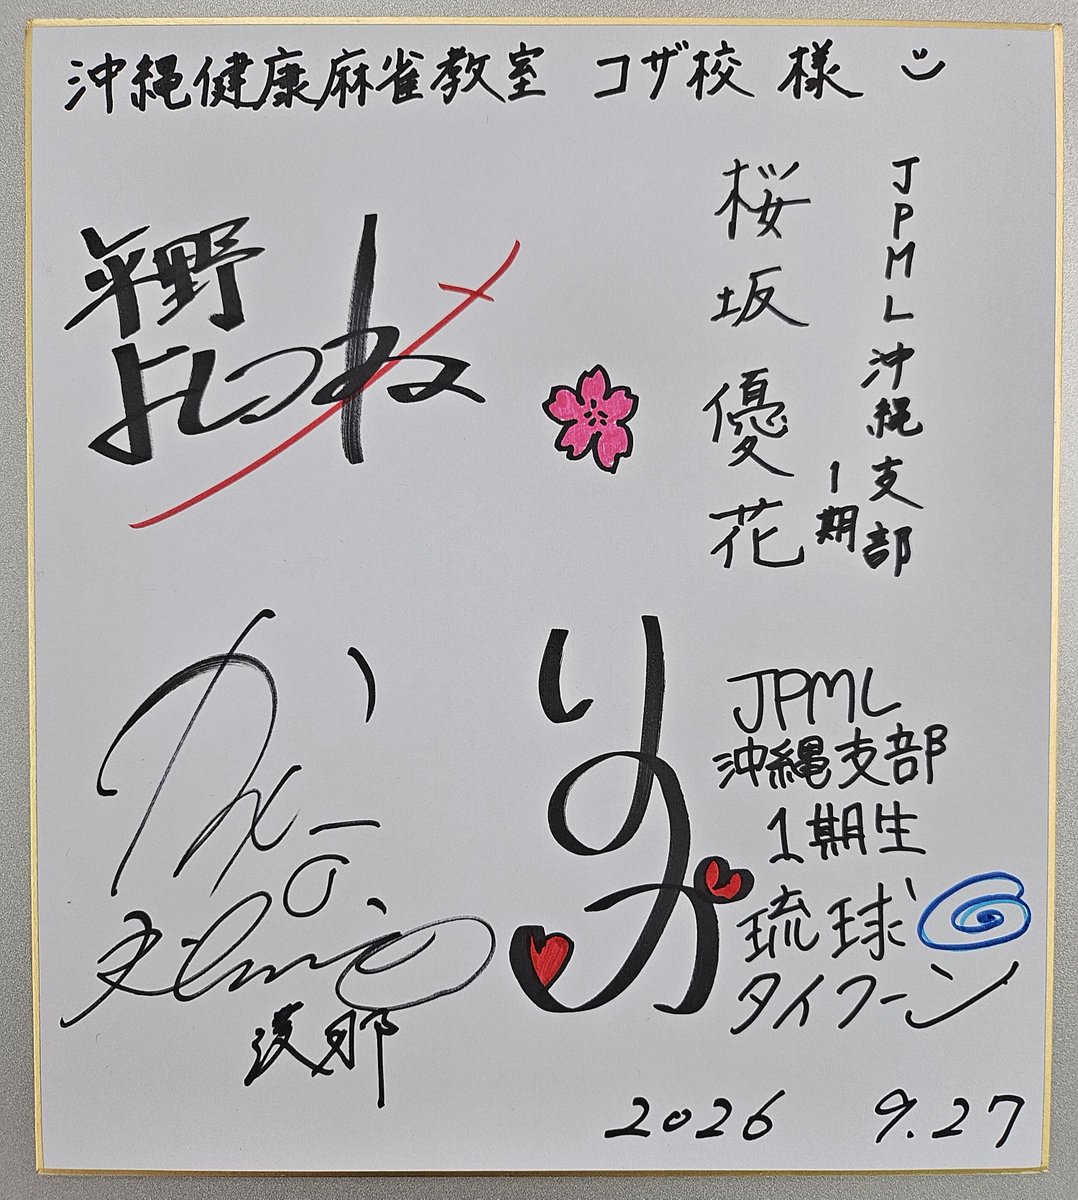 沖縄健康麻雀教室 コザ校 様
JPML沖縄支部
1期
桜坂優花
平野
よしつね
JPML
沖縄支部
1期生
琉球
タイフーン
りのか
2026 9.27